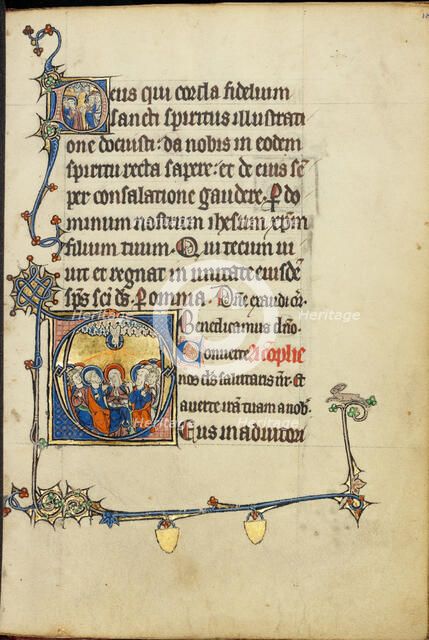 Deus qui corda fidelium
sancti spiritus illustrati
one docuisti: da nobis in eodem
spiritu recta sapere: et de eius sē
per consolatione gaudere. P do
minum nostrum ihesum xpm̄
filium tuum. Qui tecum ui
uit et regnat in unitate eiusdē
sp̄s sc̄i d̄s. P omnia. Dn̄e exaudi or̄.
Benedicamus dn̄o.
Conuerte A cōplie
nos d̄s salutaris nr̄. et
auerte irā tuam a nob̄.
Deus in adiutori
heritage
Heritage
Images